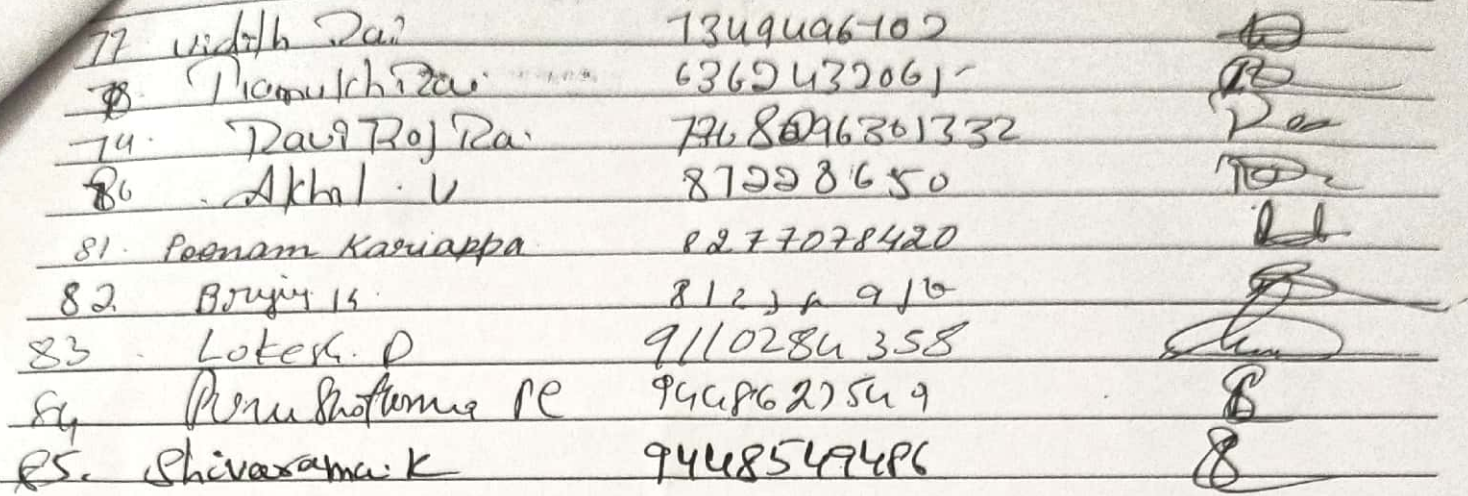 77 Vidith Rai 7349496102
78. Pramukh Rai 6362432061
79. Ravi Raj Rai 9696301332
80. Akhal. U 87228650
81. Poonam Kariappa 8277078420
82. Brijiy K.
83. Lokesh. D 9110284358
84 Purushothama PC 9448627549
85. Shivarama. K 9448549486